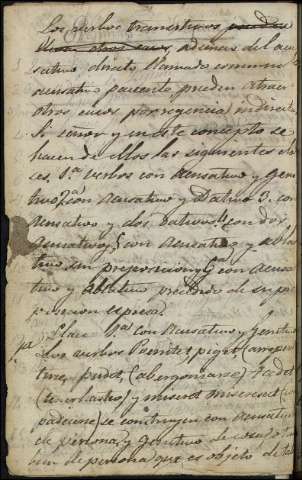 Los verbos transitivos pueden
adem.s del acu-
sativo directo, llamado comunm.
acusativo paciente pueden atraer
otros casos por regencia indirecta
Si señor y en este concepto se
hacen de ellos las siguientes cla-
ces. 1.a verbos con acusativo y geni-
tivo, 2. con acusativo y Dativo 3. con
acusativo y dos dativos 4. con dos
acusativos, 5. con acusativo y abla-
tivo sin preposicion y 6. con acusa-
tivo y ablativo precedido de su pre-
posicion expresa.
1.a Clase 1.a con acusativo y genitivo
Los verbos Poenitet piget (arrepen-
tirse, pudet, (abergonsarse) tædet
(tener astio) y miseret miserescit (com
padecerse) se construyen con acusativo
de persona, y genitivo de cosa, o tam
bien de persona, que es objeto de